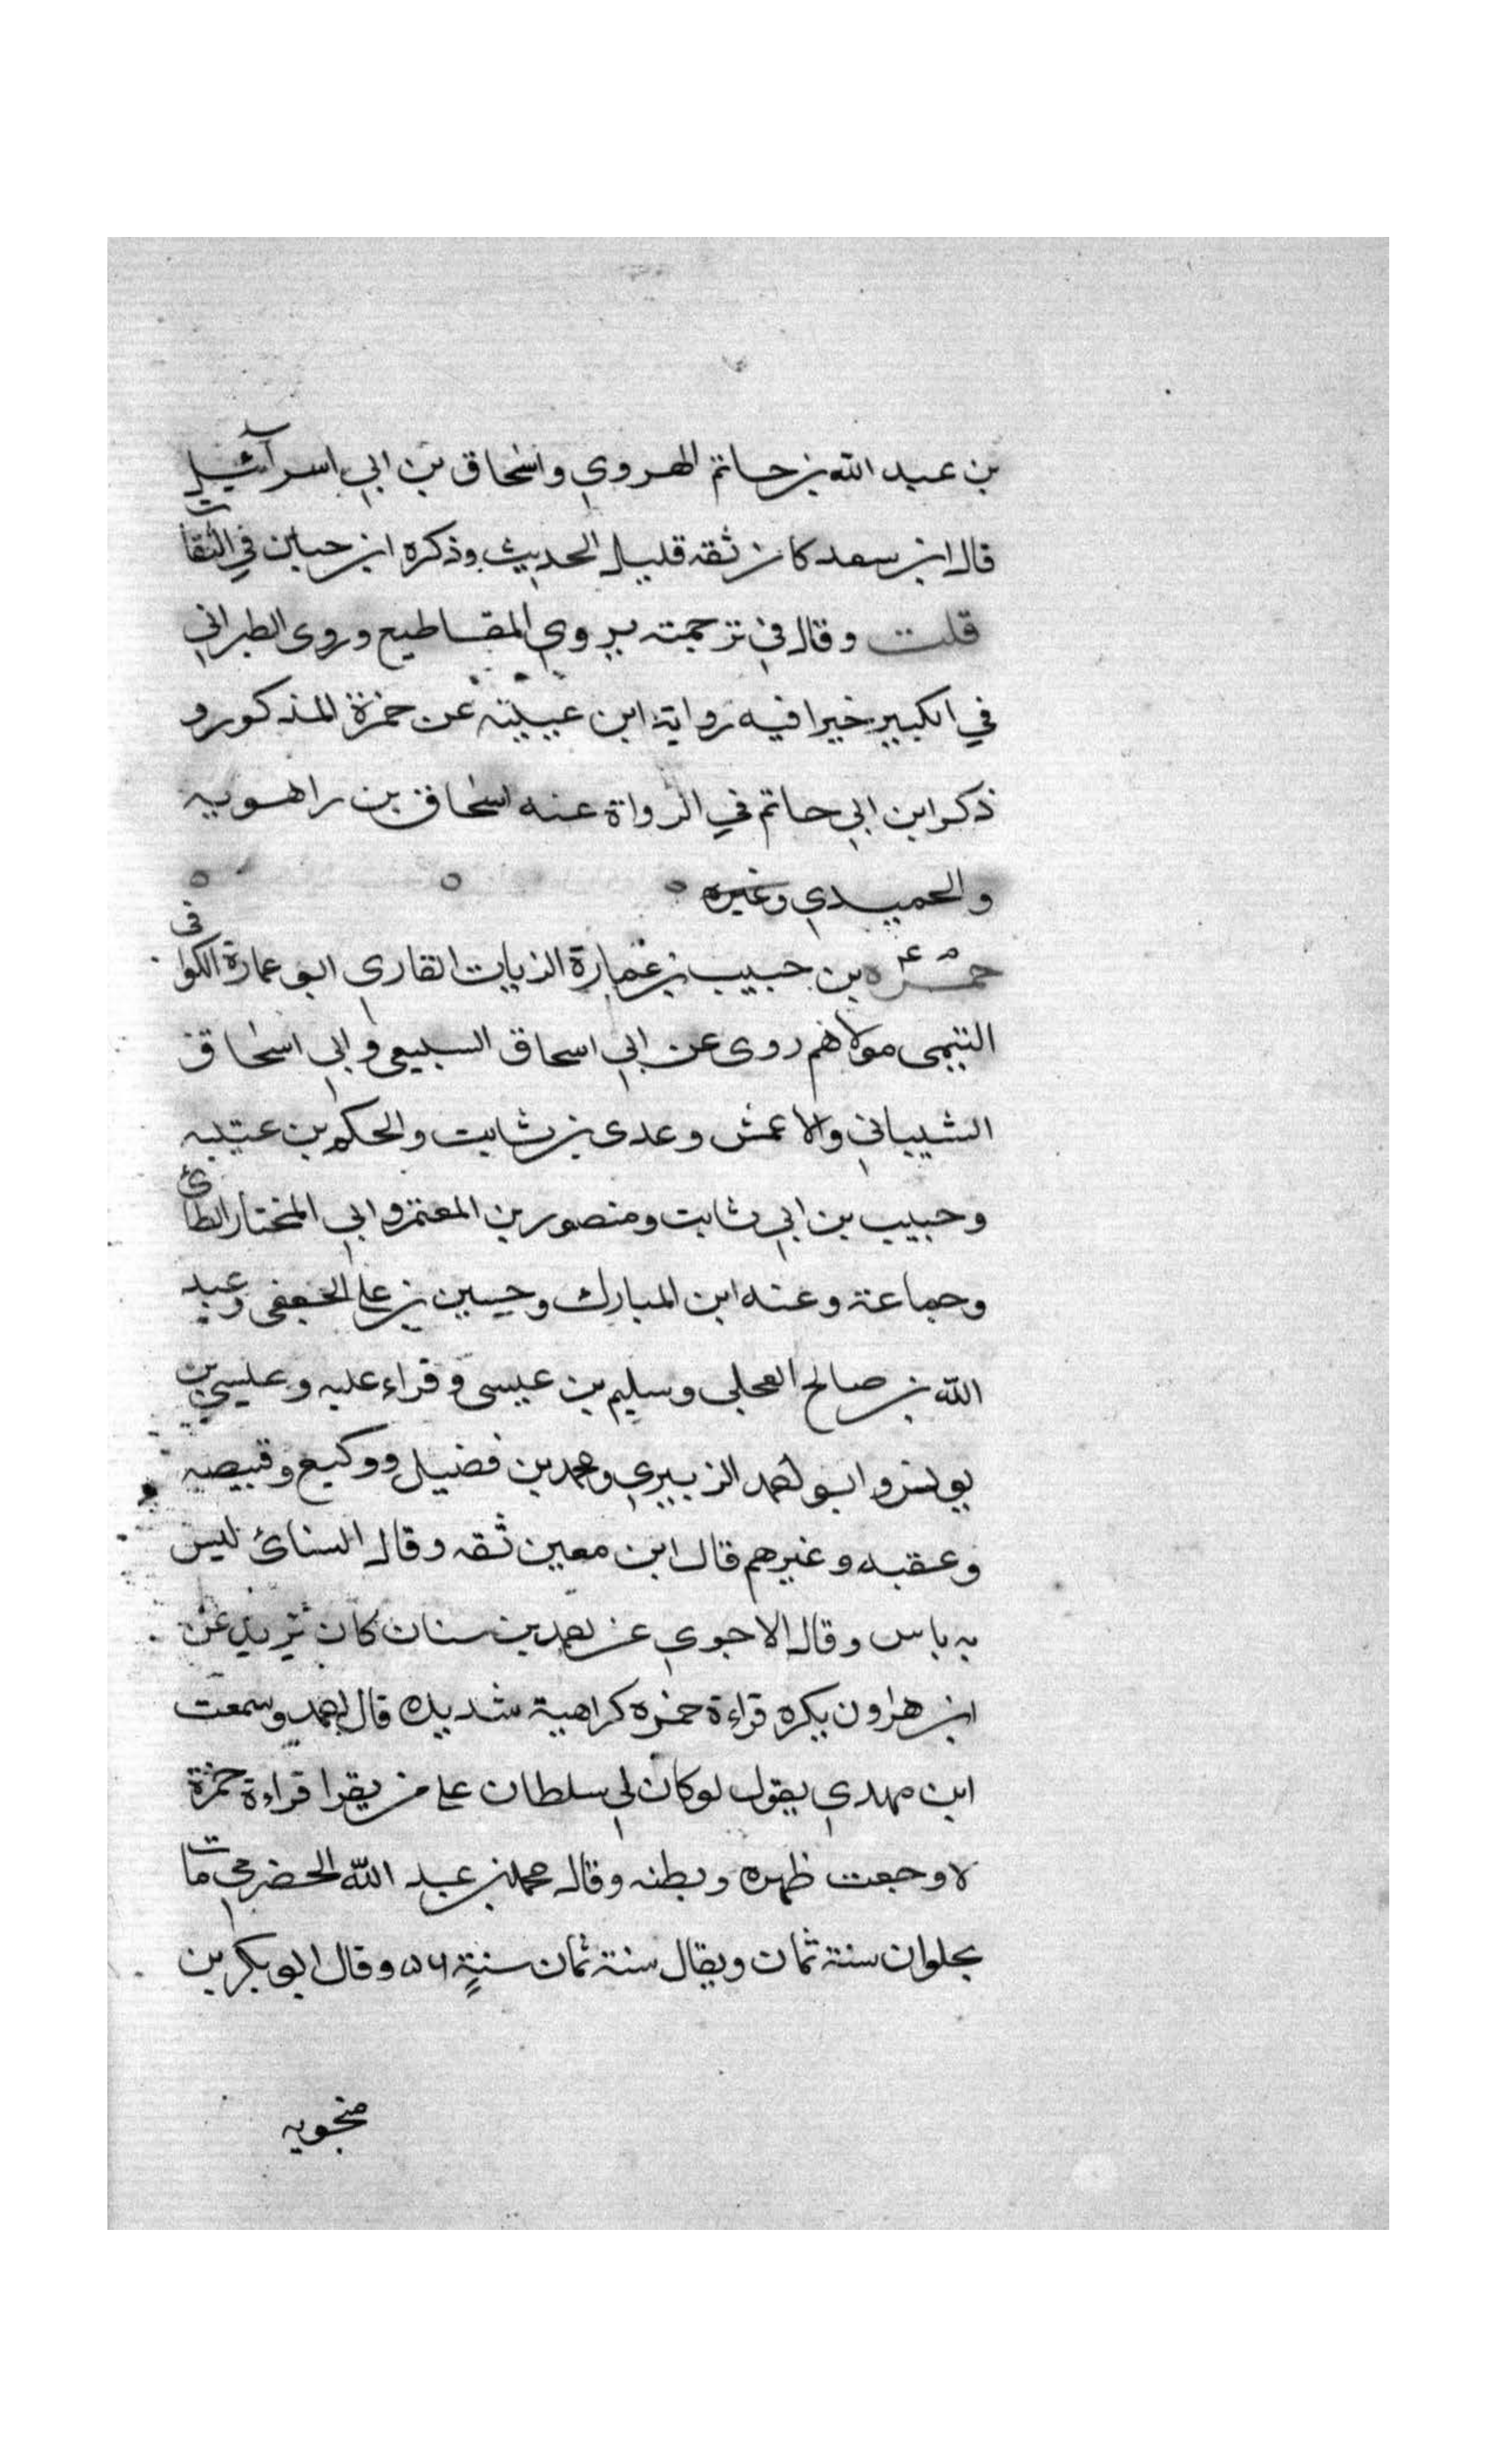 بن عبد الله بن حاتم الهروي واسحاق بن ابي اسرآئيل
قال ابن سعد كان ثقه قليل الحديث وذكره ابن حبان في الثقات
قلت وقال في ترجمته يروي المقاطيع وروى الطبراني
في الكبير خيرا فيه رواية ابن عيينه عن حمزة المذكور و
ذكر ابن ابي حاتم في الرواة عنه اسحاق بن راهويه
والحميدي وغيره
م عم
حمزه بن حبيب بن عمارة الزيات القارى ابو عمارة الكوافى
التيمى مولاهم روى عن ابي اسحاق السبيعى وابي اسحاق
الشيباني والاعمش وعدى بن ثابت والحكم بن عتيبه
وحبيب بن ابي ثابت ومنصور بن المعتمر وابي المختار الطائ
وجماعة وعنه ابن المبارك وحسين بن على الجعفى وعبد
الله بن صالح العجلى وسليم بن عيسى وقراء عليه وعيسى بن
يونس وابو احمد الزبيري ومحمد بن فضيل ووكيع وقبيصه
وعقبه وغيرهم قال ابن معين ثقه وقال النسائ ليس
به باس وقال الاجوي عن احمد بن سنان كان يزيد عن
ابن هارون يكره قراءة حمزه كراهية شديده قال احمد وسمعت
ابن مهدي يقول لو كان لي سلطان على من يقرا قراءة حمزة
لاوجعت ظهره وبطنه وقال محمد بن عبد الله الحضرمي مات
بحلوان سنة ثمان ويقال سنة ثمان سنة ٥٦ وقال ابو بكر بن
منجويه